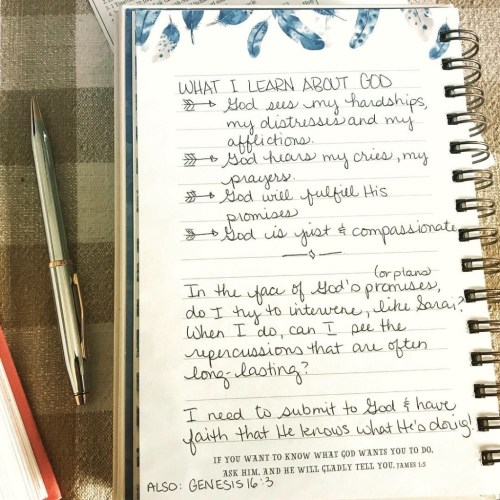 WHAT I LEARN ABOUT GOD
God sees my hardships,
my distresses and my
afflictions.
God hears my cries, my
prayers.
God will fulfill His
promises
God is just & compassionate
(or plans)
In the face of God's promises,
do I try to intervene, like Sarai?
When I do, can I see the
repercussions that are often
long-lasting?
I need to submit to God & have
faith that He knows what He's doing!
IF YOU WANT TO KNOW WHAT GOD WANTS YOU TO DO,
ASK HIM, AND HE WILL GLADLY TELL YOU. JAMES 1:5
ALSO: GENESIS 16:3